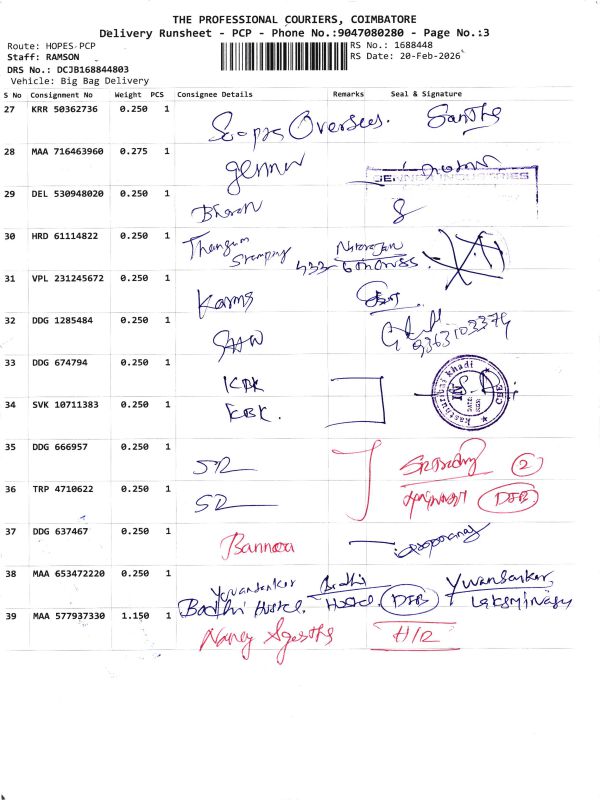 THE PROFESSIONAL COURIERS, COIMBATORE
Delivery Runsheet - PCP - Phone No.:9047080280 - Page No.:3
Route: HOPES PCP
RS No.: 1688448
Staff: RAMSON
RS Date: 20-Feb-2026
DRS No.: DCJB168844803
Vehicle: Big Bag Delivery
S No Consignment No Weight PCS Consignee Details Remarks Seal & Signature
27 KRR 50362736 0.250 1 Overseas. Santhe
28 MAA 716463960 0.275 1
INDUSTRIES
29 DEL 530948020 0.250 1 Bharan
30 HRD 61114822 0.250 1 Natarajan
31 VPL 231245672 0.250 1 Karms
32 DDG 1285484 0.250 1 9363103379
33 DDG 674794 0.250 1 KBK
34 SVK 10711383 0.250 1 KBK.
kasthuribai khadi
35 DDG 666957 0.250 1 SR 2
36 TRP 4710622 0.250 1 SR DSB
37 DDG 637467 0.250 1 Bannera
38 MAA 653472220 0.250 1 Yuvansankar Bodhi Yuvansankar
Bodhi Hostel. Hostel. DSB
39 MAA 577937330 1.150 1 Nancy Agastha H/R